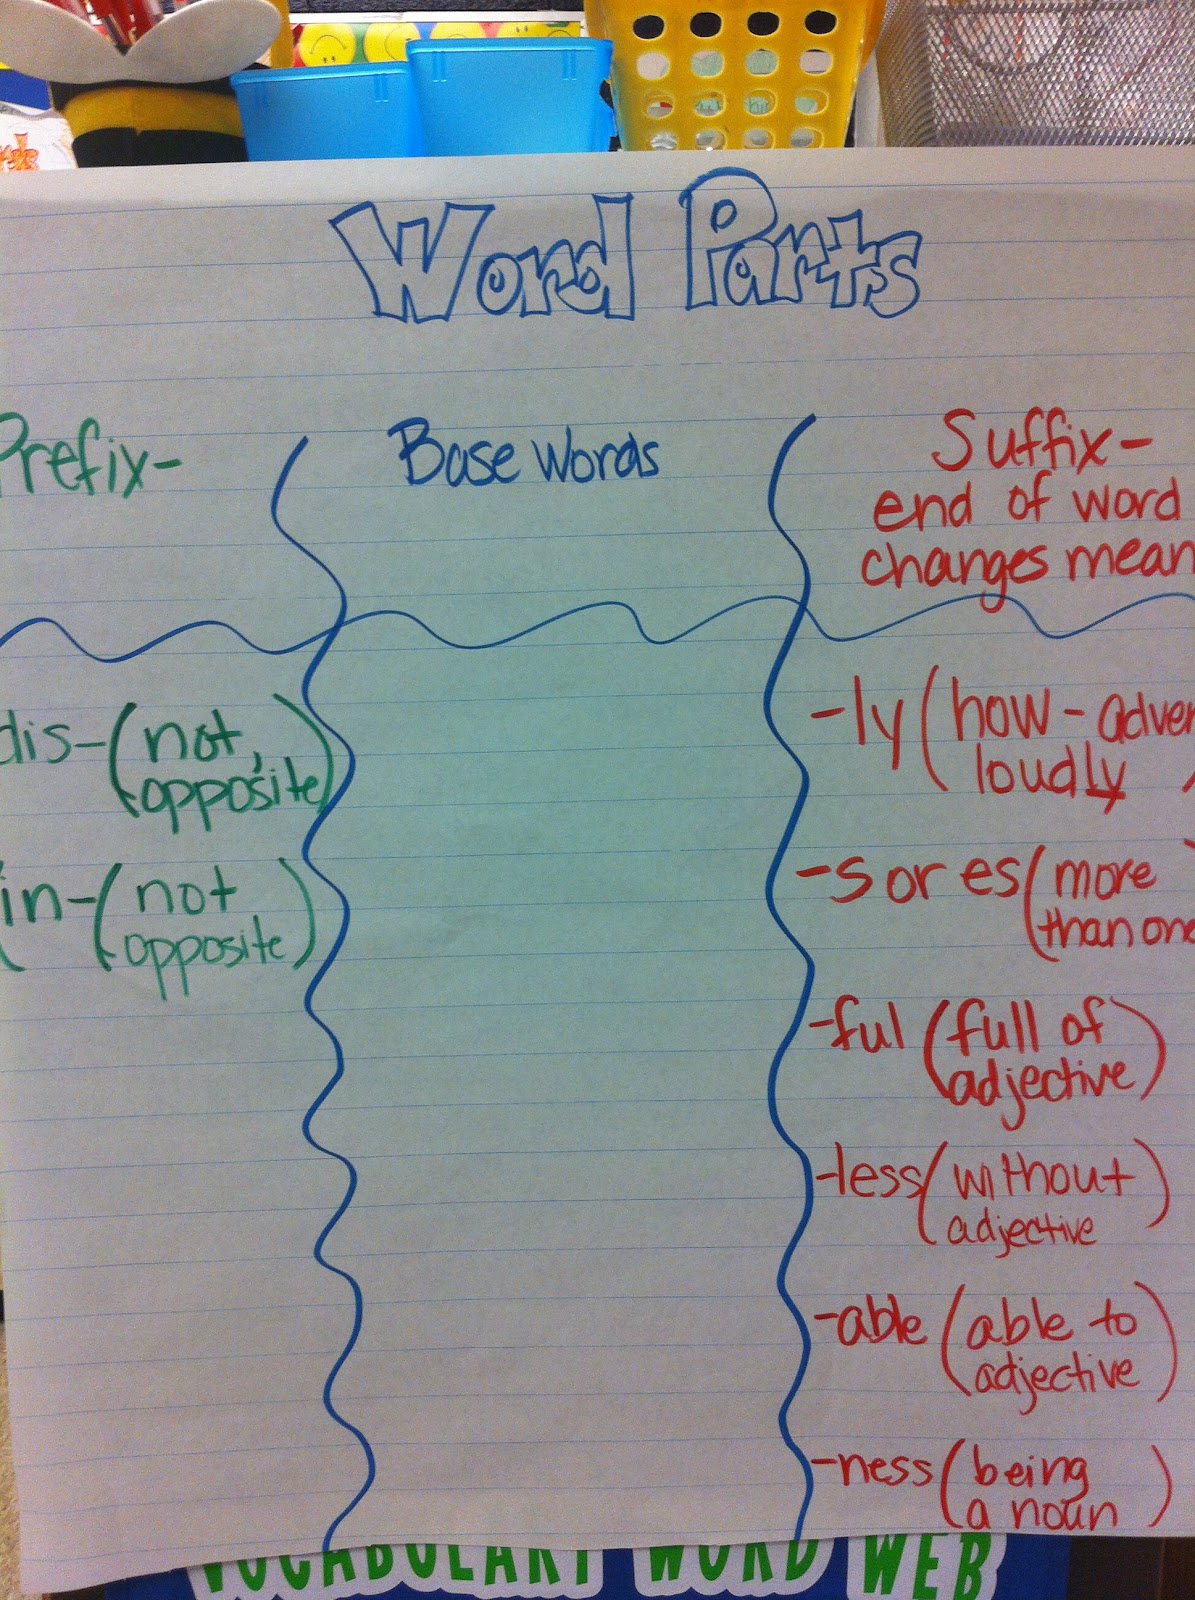 Word Parts
Prefix-
Base Words
Suffix-
end of word
changes mean
dis- (not,
opposite)
in- (not
opposite)
-ly (how - adver
loudly
-s or es (more
than one
-ful (full of
adjective)
-less (without
adjective)
-able (able to
adjective)
-ness (being
a noun)
VOCABULARY WORD WEB